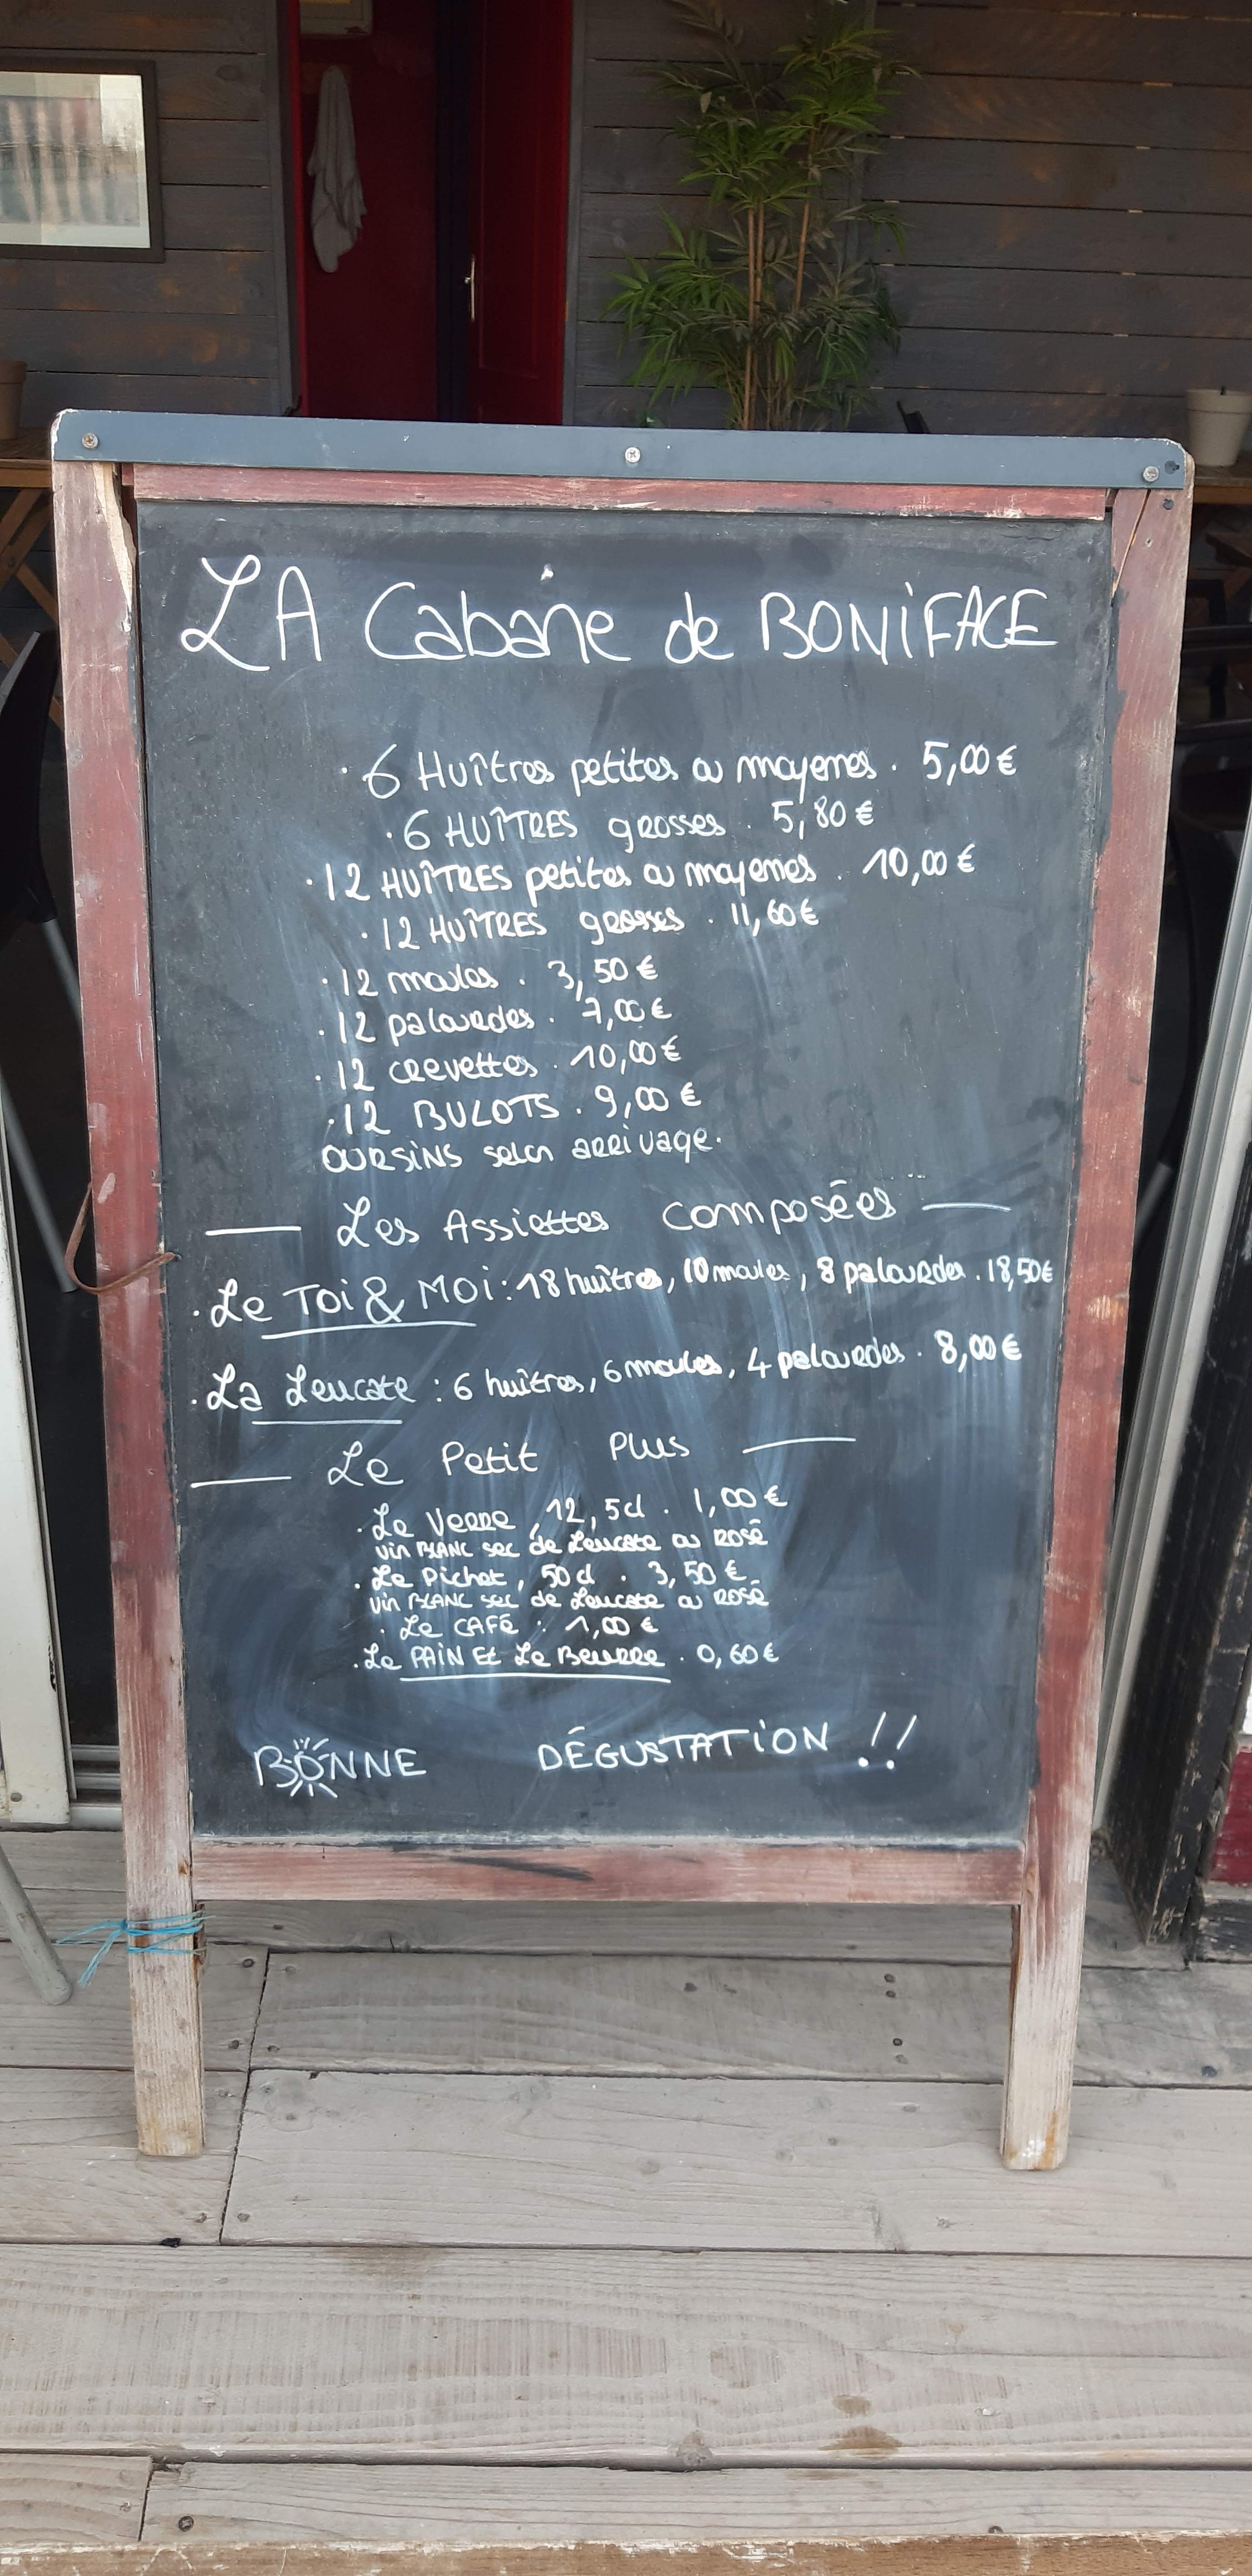 LA Cabane de BONiFACE
. 6 Huîtres petites ou moyennes . 5,00 €
. 6 HUÎTRES grosses . 5,80 €
. 12 HUÎTRES petites ou moyennes . 10,00 €
. 12 HUÎTRES grosses . 11,60 €
. 12 moules . 3,50 €
. 12 palourdes . 7,00 €
. 12 crevettes . 10,00 €
. 12 BULOTS . 9,00 €
OURSiNS selon arrivage.
— Les Assiettes composées —
. Le Toi & Moi : 18 huîtres, 10 moules, 8 palourdes . 18,50 €
. La Leucate : 6 huîtres, 6 moules, 4 palourdes . 8,00 €
— Le Petit Plus —
. Le Verre, 12,5cl . 1,00 €
vin BLANC sec de Leucate ou ROSÉ
. Le Pichet, 50cl . 3,50 €
vin BLANC sec de Leucate ou ROSÉ
. Le CAFÉ . 1,00 €
. Le PAiN Et Le Beurre . 0,60 €
BONNE DÉGUSTATiON !!